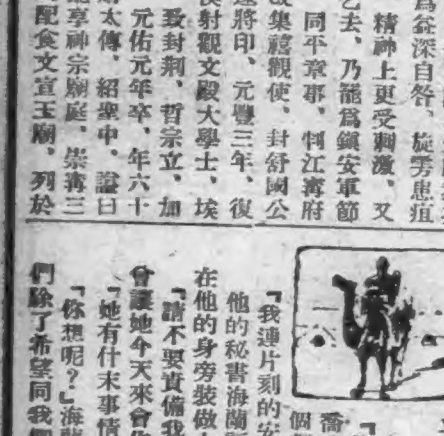 爲益深自咎、旋雱患疽
精神上更受刺激、又
乞去、乃罷爲鎮安軍節
同平章事、判江寧府
改集禧觀使、封舒國公
還將印、元豐三年、復
僕射觀文殿大學士、
致封荆、哲宗立、加
元佑元年卒、年六十
太傅、紹聖中、諡曰
享神宗廟庭、崇寧三
配食文宣王廟、列於
喬
個
「我連片刻的安
他的秘書海蘭
在他的身旁裝做
「請不要責備我
會讓她今天來會
「她有什末事情
「你想呢？」海蘭
們除了希望同我